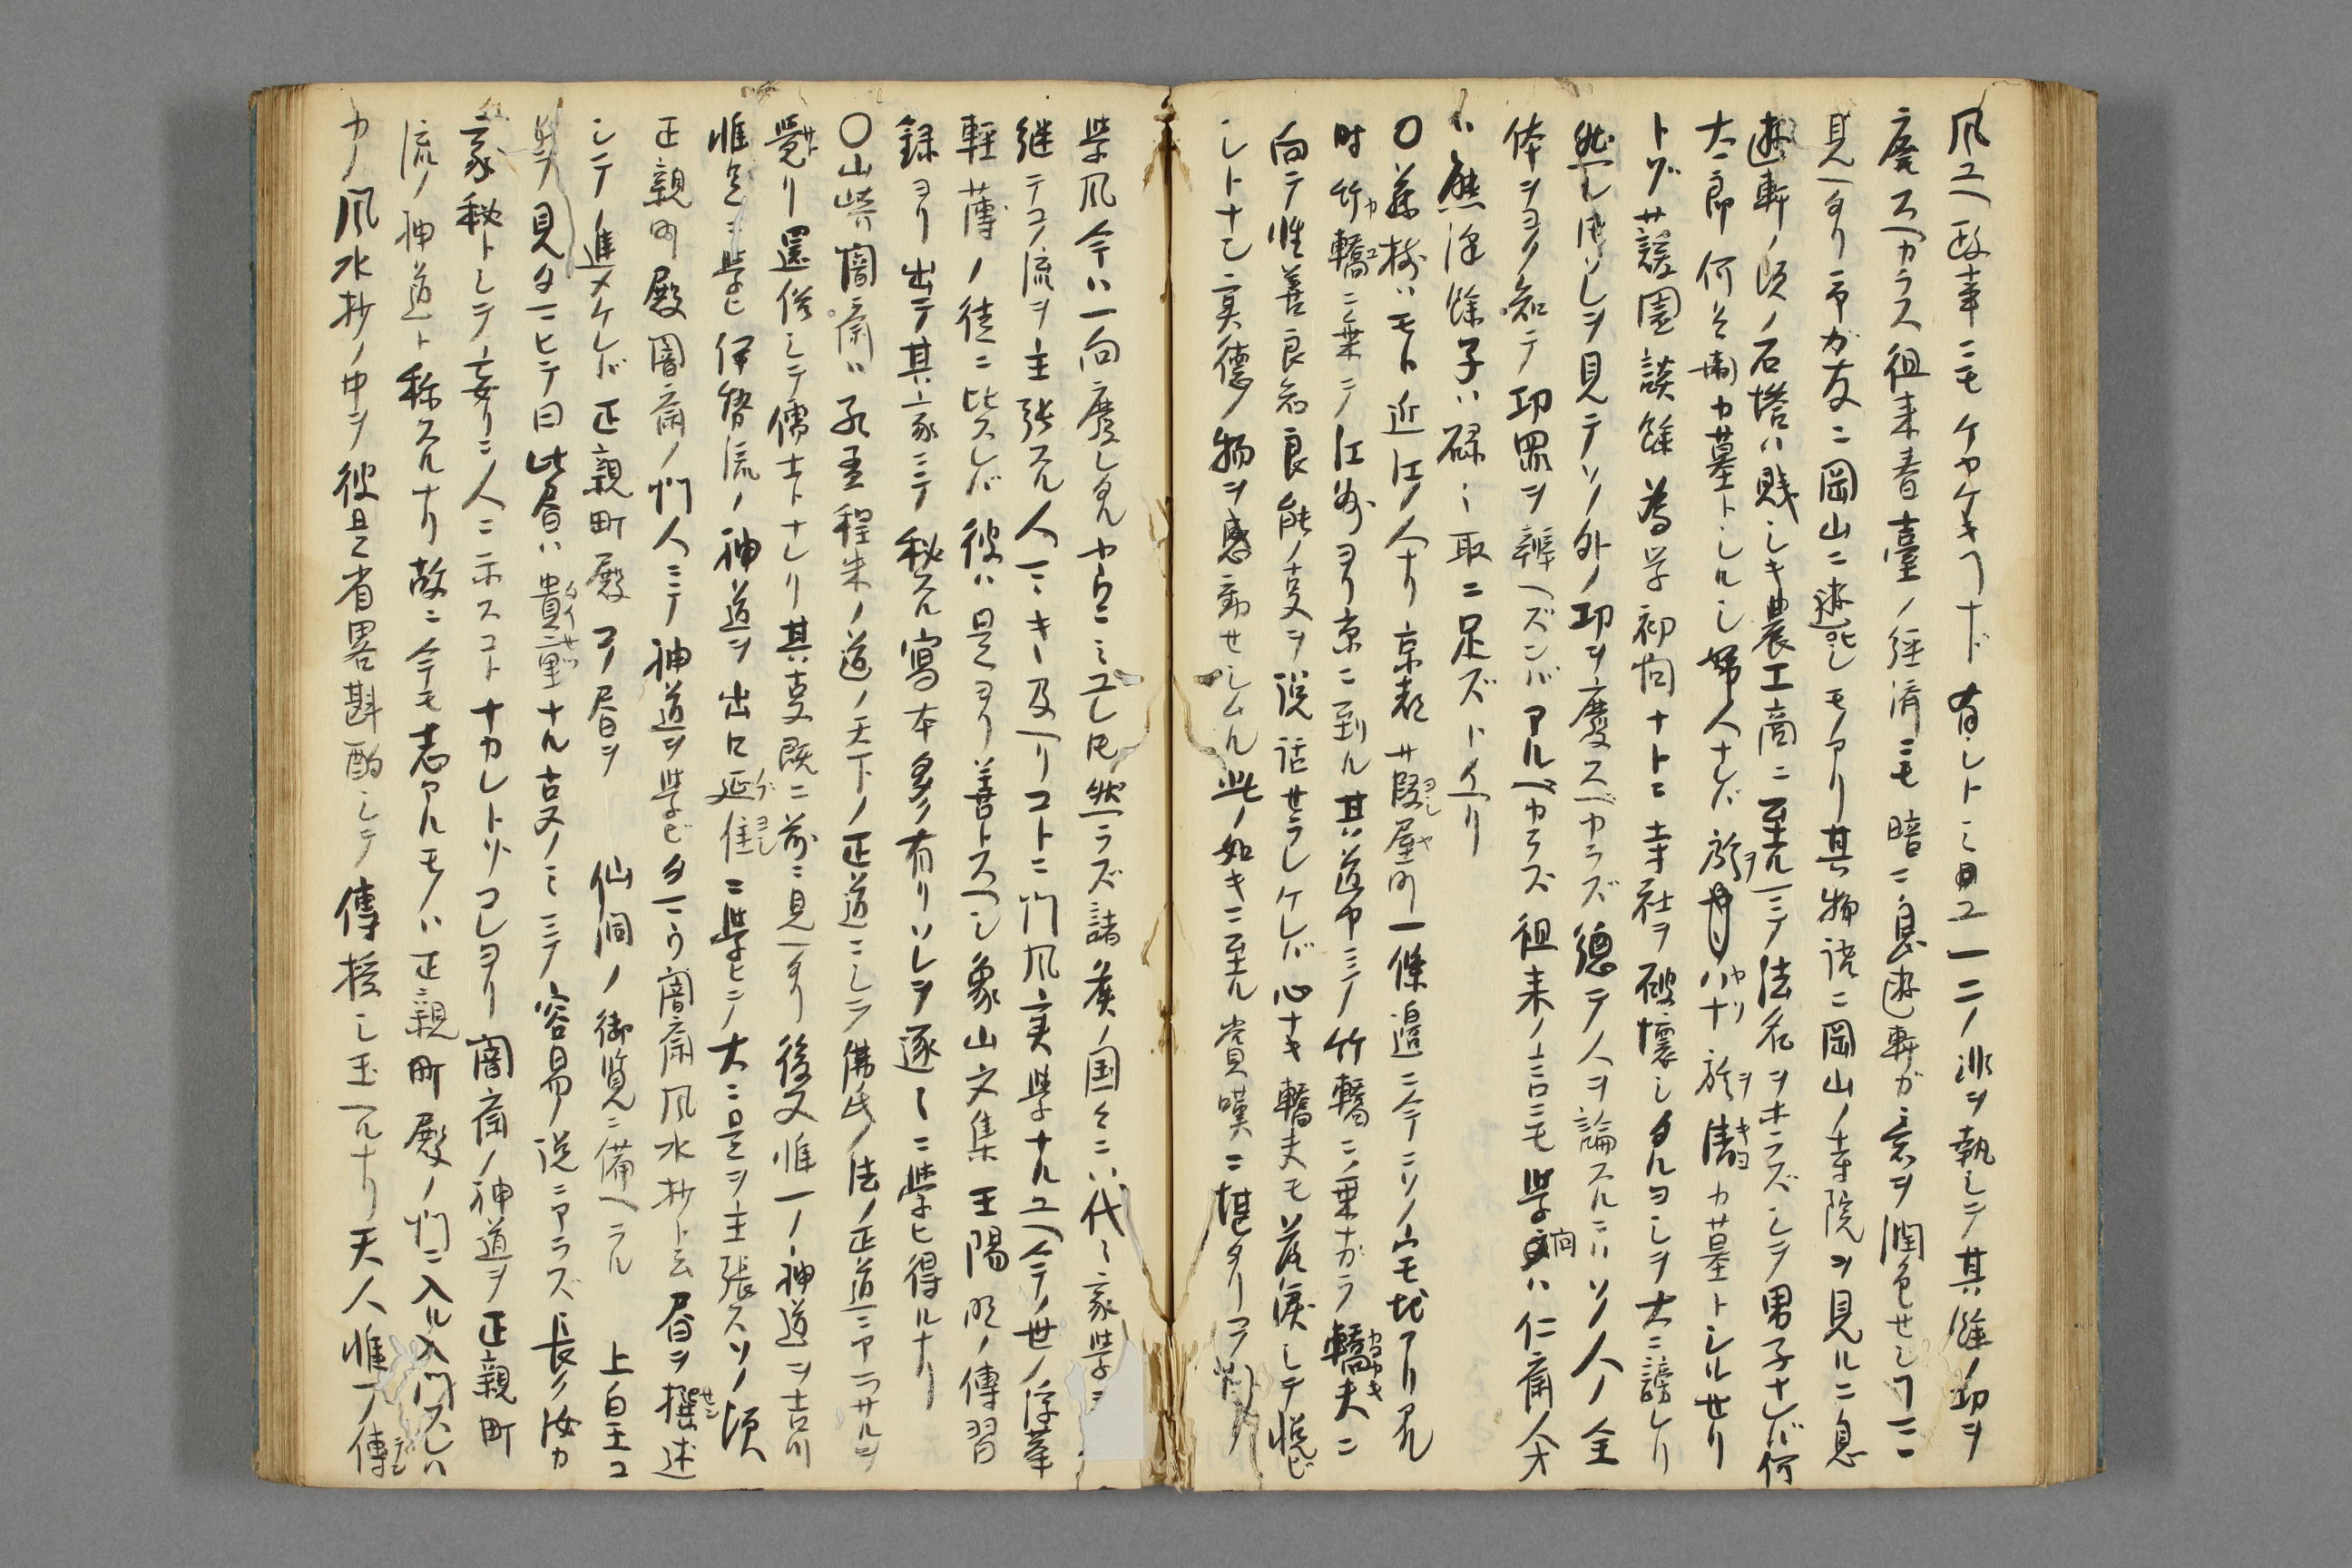 風ユヘ政事ニモケヤケキヿナド有シトミユ一二ノ非ヲ執シテ其餘ノ功ヲ
廃スヘカラス徂来春臺ノ経済ニモ暗ニ息遊軒ガ意ヲ潤色セシヿ
見ヘタリ予ガ友ニ岡山ニ遊ヒシモノアリ其物語ニ岡山ノ寺院ヲ見ルニ息
遊軒ノ頃ノ石塔ハ賤シキ農工商ニ至ルマテ法名ヲホラズシテ男子ナレバ何
太郎何兵衛カ墓トシルシ婦人ナレバ於ハナ於清カ墓トシルセリ
トゾ䕶園談餘為学初問ナトニ寺社ヲ破壊シタルヨシヲ大ニ謗レリ
然レ𪜈ソレヲ見テソノ外ノ功ヲ廃スベカラズ德テ人ヲ論スルニハソノ人ノ全
体ヲヨク知テ功罪ヲ辨ヘズンバアルベカラズ徂来ノ言ニモ学問ハ仁斎人才
ハ熊澤餘子ハ碌〻取ニ足ズトイヘリ
〇藤樹ハモト近江ノ人ナリ京都葭屋町一條邉ニ今ニソノ宅地アリ
時竹轎ニ乗テ江州ヨリ京ニ到ル其道中ニテ竹轎ニ乗ナガラ轎夫ニ
向テ性善良知良能ノ㕝ヲ説話セラレケレバ心ナキ轎夫モ落涙シテ悦ビ
シトナン実德ノ物ヲ感動セシムル此ノ如キニ至ル賞嘆ニ堪タリコノ
学風今ハ一向廃レタルヤウニミユレ𪜈然ラズ諸矦ノ国〻ニハ代〻家学ヲ
継テコノ流ヲ主張スル人マヽキヽ及ヘリコトニ門風実学ナルユヘ今ノ世ノ浮華
軽薄ノ徒ニ比スレバ彼ハ是ヨリ善トスヘシ象山文集王陽明ノ傳習
録ヨリ出テ其家ニテ秘スル寫本多ク有リソレヲ逐〻ニ学ヒ得ルナリ
〇山崎闇斎ハ孔孟程朱ノ道ノ天下ノ正道ニシテ佛氏ノ法ノ正道ニアラサルヲ
覺リ還俗シテ儒士トナレリ其㕝既ニ前ニ見ヘタリ後又惟一ノ神道ヲ吉川
惟足ニ学ヒ伊勢流ノ神道ヲ出口延佳ニ学ヒテ大ニ是ヲ主張スソノ頃
正親町殿闇斎ノ門人ニテ神道ヲ学ビタマフ闇斎風水抄ト云書ヲ撰述
シテノ進メケレバ正親町殿コノ書ヲ　仙洞ノ御覧ニ備ヘラル　上皇コ
レヲ見タマヒテ曰此書ハ貴重ナル㕝ノミニテ容易ノ説ニアラズ長ク汝カ
家秘トシテ妄リニ人ニ示スコトナカレトソコレヨリ闇斎ノ神道ヲ正親町
流ノ神道ト称スルナリ故ニ今モ志アルモノハ正親町殿ノ門ニ入ル入門スレハ
カノ風水抄ノ中ヲ彼是省畧斟酌シテ傳授シ玉ヘルナリ天人惟一ノ傳